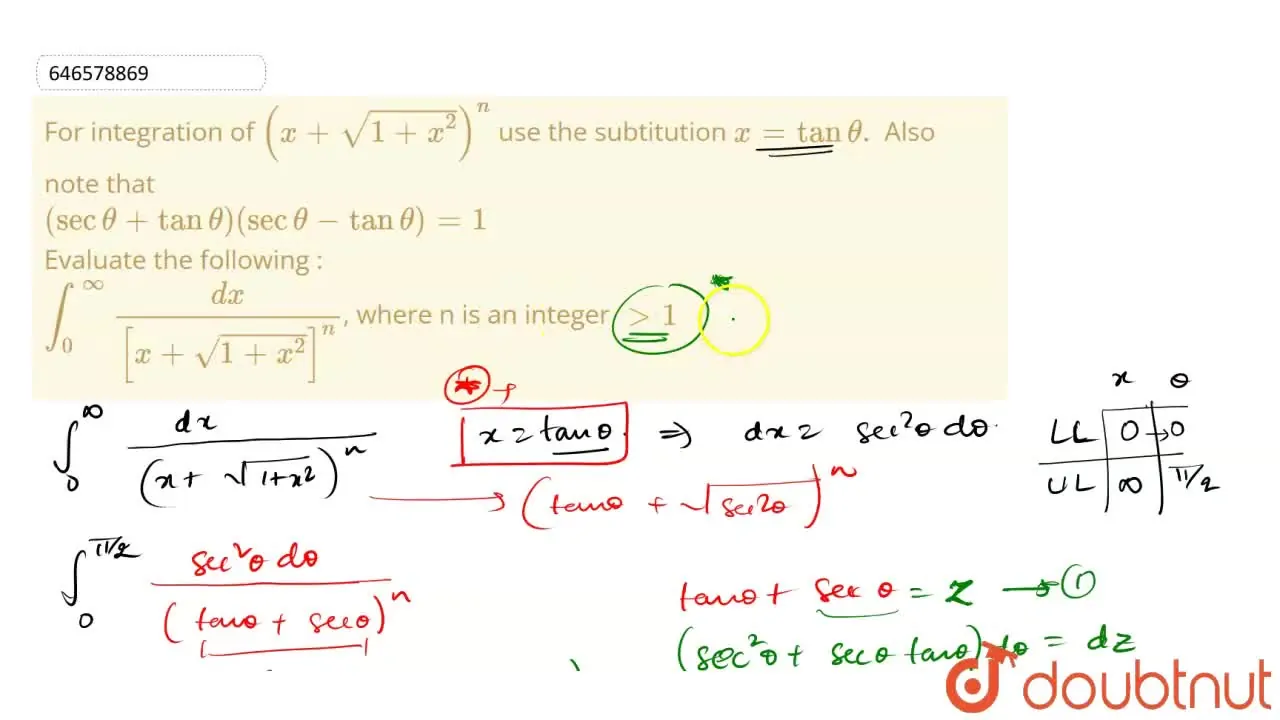 646578869
For integration of (x + √(1 + x²))ⁿ use the subtitution x = tan θ. Also
note that
(sec θ + tan θ)(sec θ − tan θ) = 1
Evaluate the following :
∫₀^∞ dx / [x + √(1 + x²)]ⁿ, where n is an integer > 1
∫₀^∞ dx / (x + √(1+x²))ⁿ
x = tanθ ⇒ dx = sec²θ dθ
(tanθ + √(sec²θ))ⁿ
x θ
LL 0 → 0
UL ∞ π/2
∫₀^(π/2) sec²θ dθ / (tanθ + secθ)ⁿ
tanθ + sec θ = z → ①
(sec²θ + secθ tanθ) dθ = dz
doubtnut